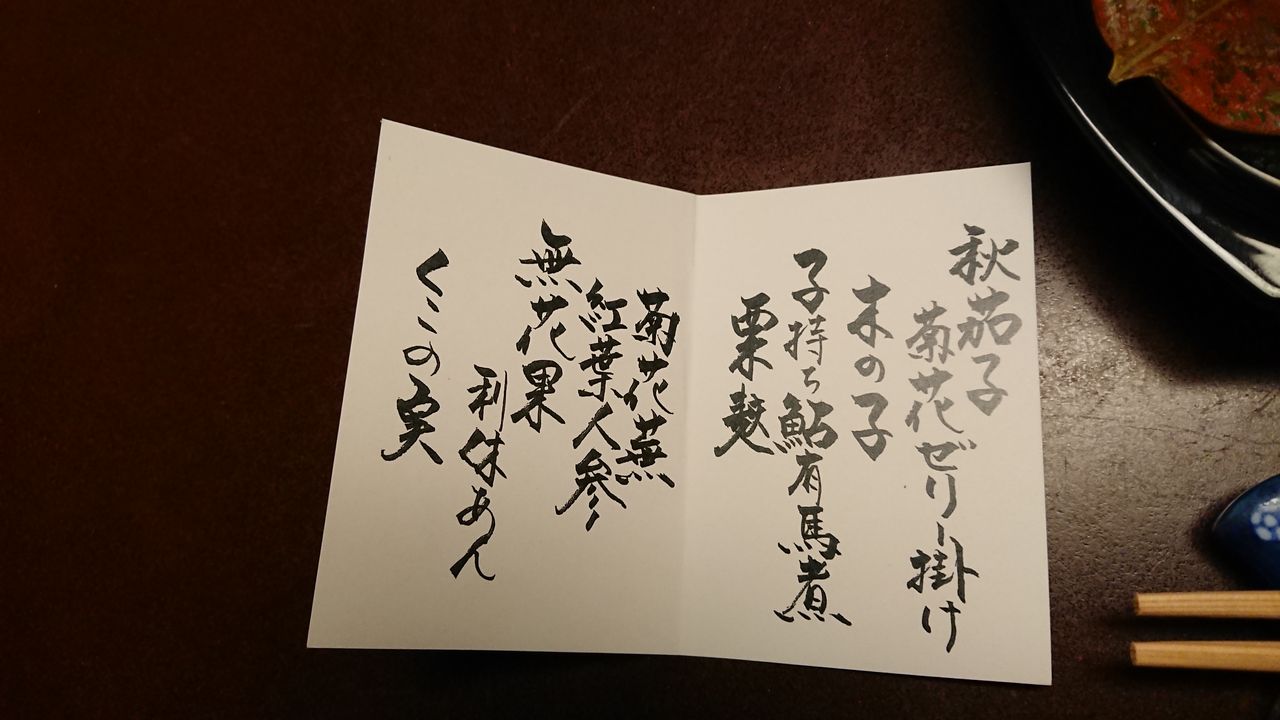 秋茄子
菊花ゼリー掛け
木の子
子持ち鮎有馬煮
栗麩
菊花蕪
紅葉人参
無花果
利休あん
くこの実